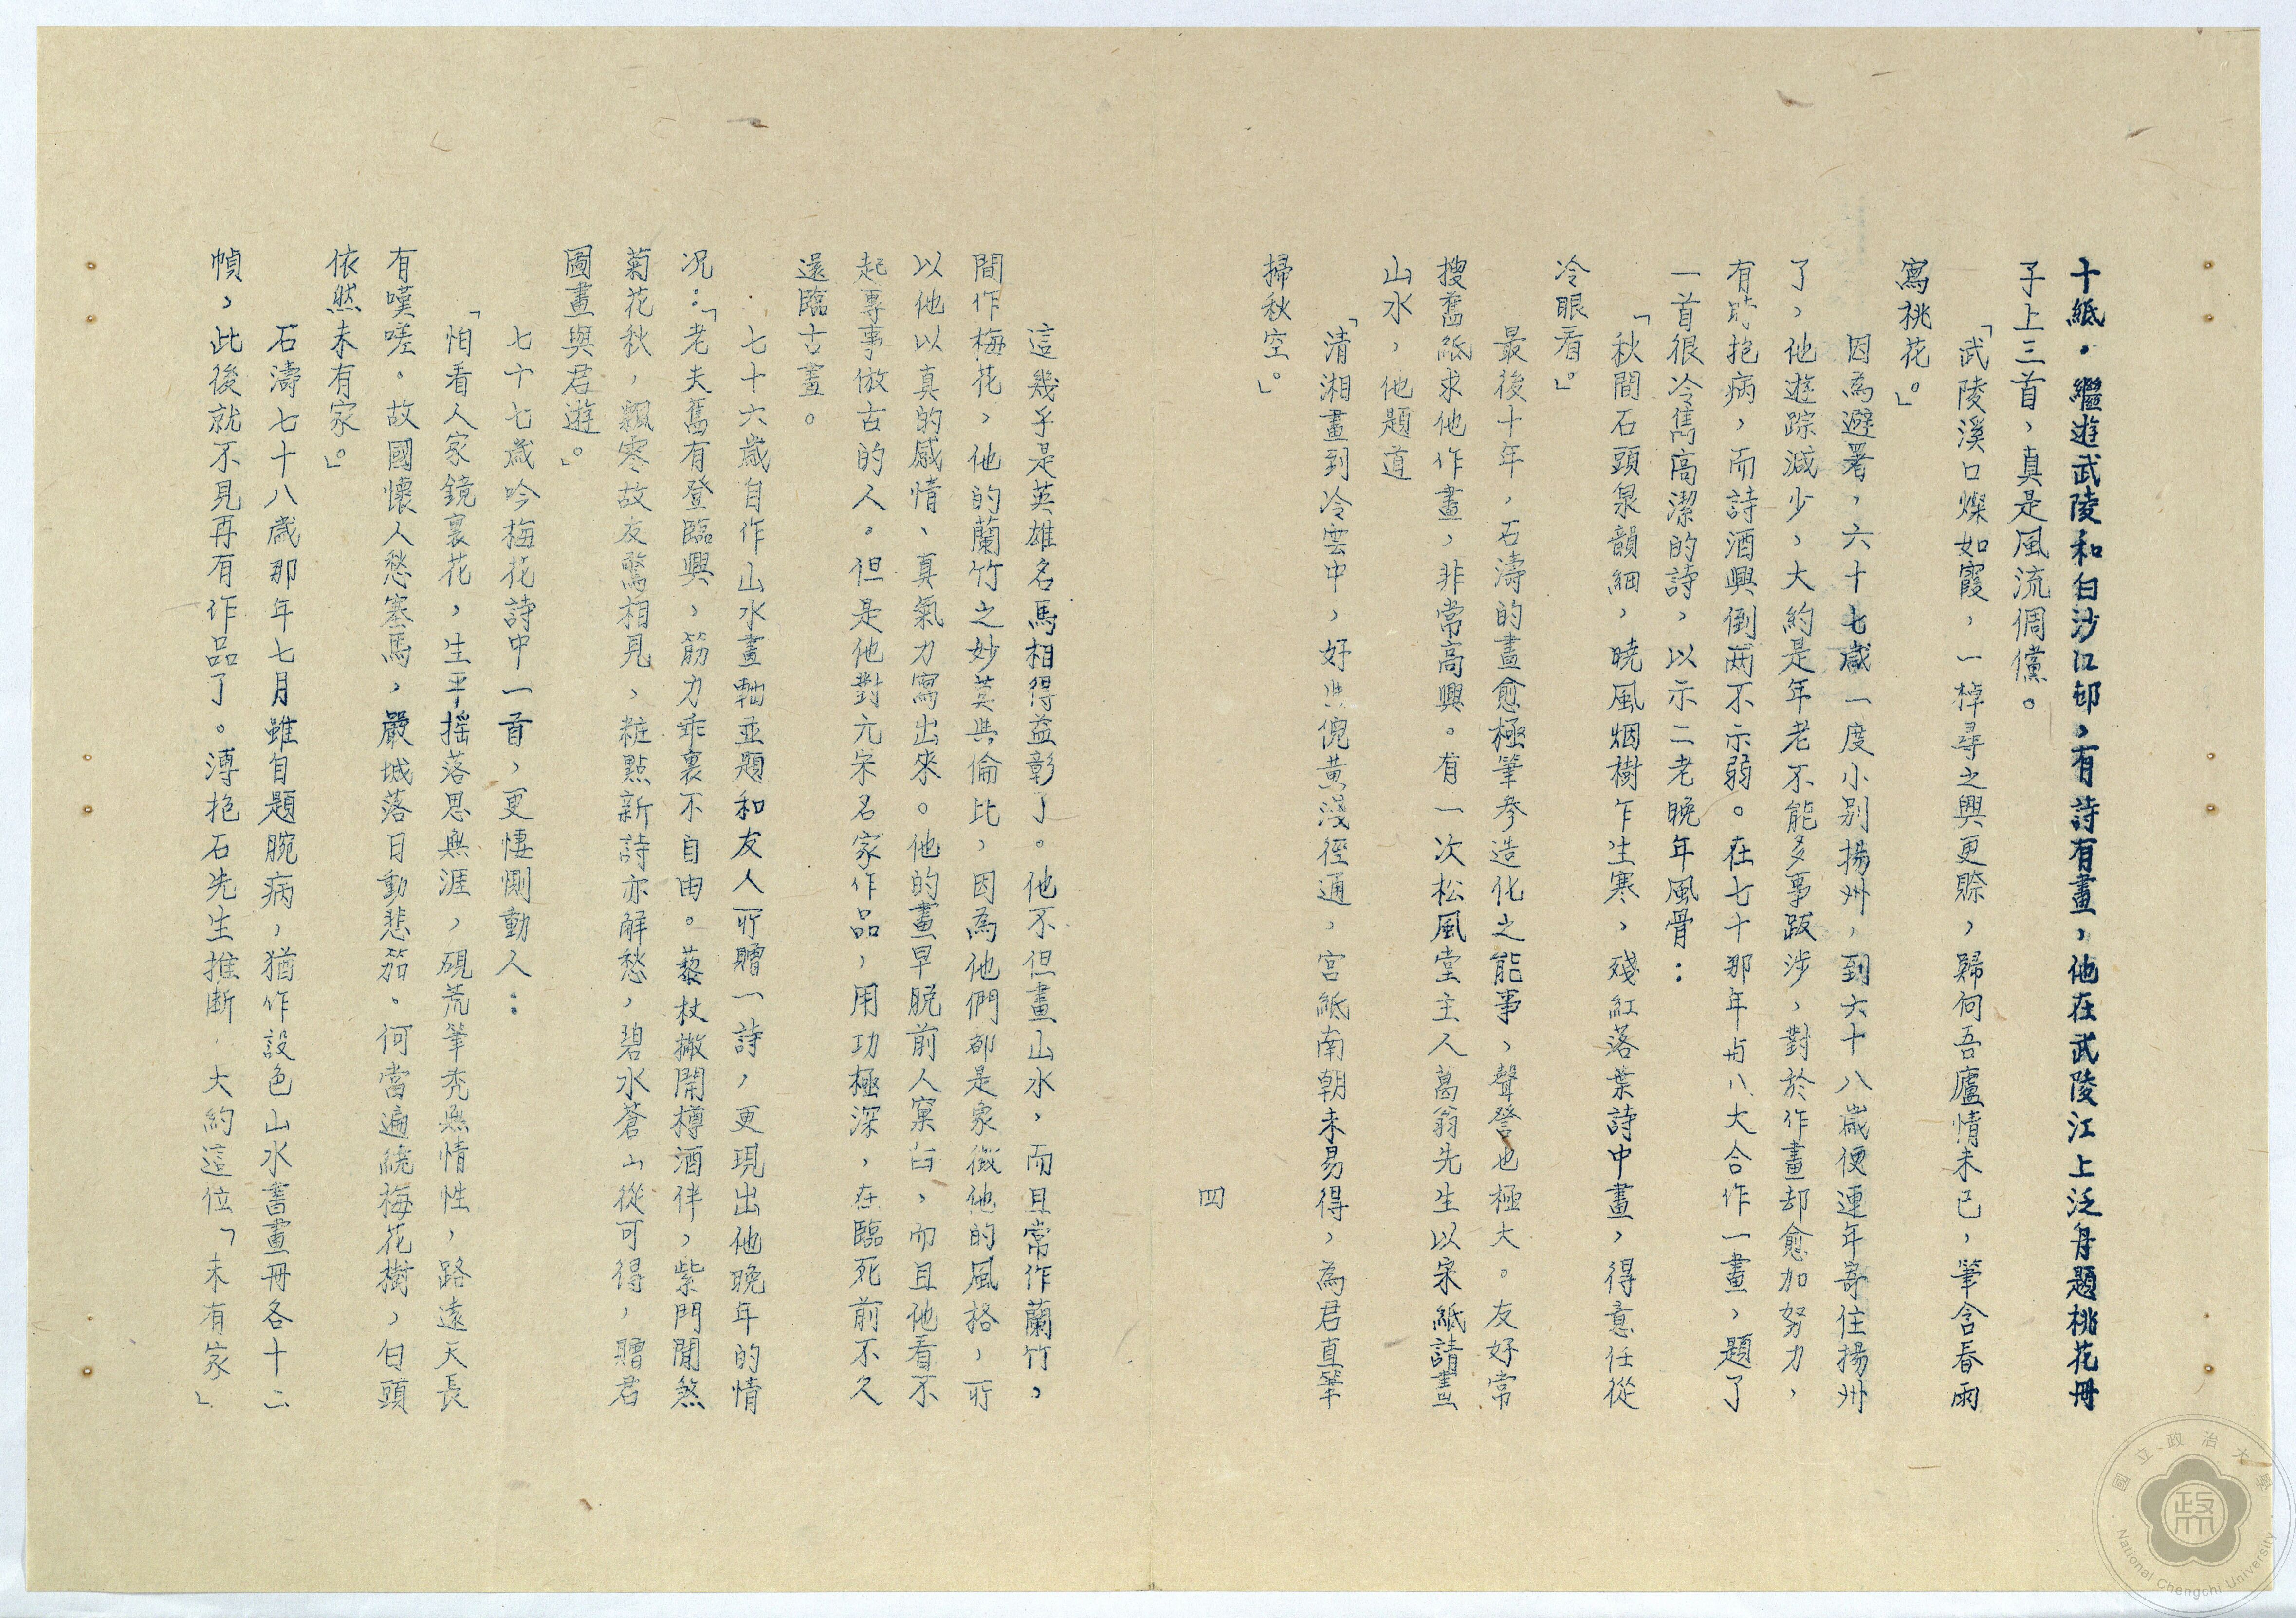 十紙，繼遊武陵和白沙江邨，有詩有畫，他在武陵江上泛舟題桃花冊
子上三首，真是風流倜儻。
「武陵溪口燦如霞，一棹尋之興更賒，歸何吾廬情未已，筆含春雨
寫桃花。」
因為避署，六十七歲一度小别揚州，到六十八歲便連年寄住揚州
了，他遊踪減少，大約是年老不能多事跋涉，對於作畫却愈加努力，
有時抱病，而詩酒興倒兩不示弱。在七十那年與八大合作一畫，題了
一首很冷雋高潔的詩，以示二老晚年風骨：
「秋間石頭泉韻細，曉風烟樹乍生寒，殘紅落葉詩中畫，得意任從
冷眼看。」
最後十年，石濤的畫愈極筆參造化之能事，聲譽也極大。友好常
搜舊紙求他作畫，非常高興。有一次松風堂主人葛翁先生以宋紙請畫
山水，他題道
「清湘畫到冷雲中，好共倪黄淺徑通，宮紙南朝未易得，為君直筆
掃秋空。」
四
這幾乎是英雄名馬相得益彰了。他不但畫山水，而且常作蘭竹，
間作梅花，他的蘭竹之妙莫與倫比，因為他們都是象徵他的風格，所
以他以真的感情、真氣力寫出來。他的畫早脱前人窠臼，而且他看不
起專事倣古的人。但是他對元宋名家作品，用功極深，在臨死前不久
還臨古畫。
七十六歲自作山水畫軸並題和友人所贈一詩，更現出他晚年的情
况：「老夫舊有登臨興，筋力乖裏不自由。藜杖撇開樽酒伴，紫門閒煞
菊花秋，飄零故友驚相見，粧點新詩亦解愁，碧水蒼山從可得，贈君
圖畫與君遊。」
七十七歲吟梅花詩中一首，更悽惻動人：
「怕看人家鏡裏花，生平摇落思無涯，硯荒筆秃無情性，路遠天長
有嘆嗟。故國懷人愁塞馬，嚴城落日動悲笳。何當遍繞梅花樹，白頭
依然未有家。」
石濤七十八歲那年七月雖自題腕病，猶作設色山水書畫冊各十二
幀，此後就不見再有作品了。溥抱石先生推断，大約這位「未有家」
國立政治大學
National Chengchi University